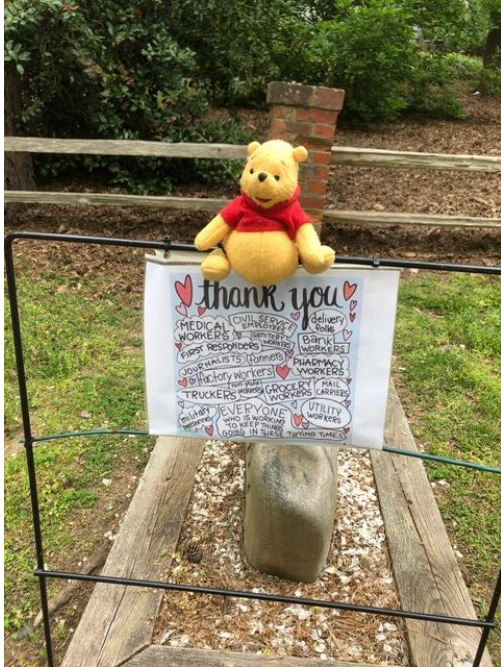 thank you
MEDICAL WORKERS
CIVIL SERVICE EMPLOYEES
delivery folks
SANITARY WORKERS
Bank WORKERS
FIRST RESPONDERS
JOURNALISTS
farmers
PHARMACY WORKERS
factory workers
TRUCKERS
NON-profit WORKERS
GROCERY WORKERS
MAIL CARRIERS
military personnel
EVERYONE
WHO IS WORKING
TO KEEP THINGS
GOING IN THESE TRYING TIMES
UTILITY WORKERS